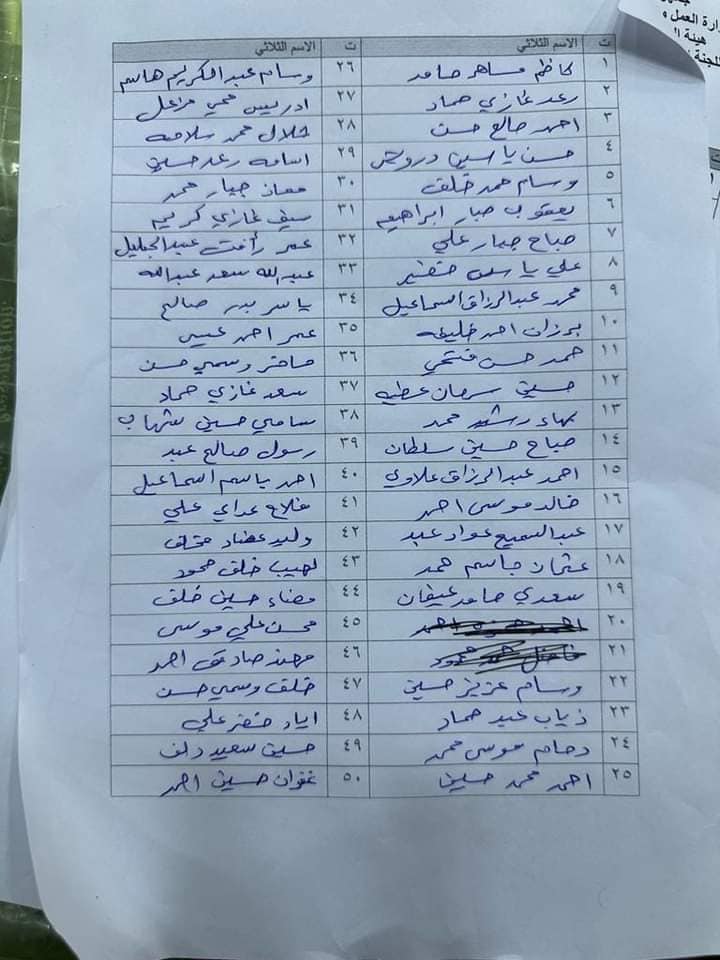 جمهور
وزارة العمل و
هيئة ا
اللجنة
ت الاسم الثلاثي
١ كاظم مساهر حامد
٢ رعد غازي حماد
٣ احمد صالح حسن
٤ حسن ياسين درويش
٥ وسام حمد خلف
٦ يعقوب جبار ابراهيم
٧ صباح جبار علي
٨ علي ياسين خضير
٩ محمد عبدالرزاق اسماعيل
١٠ برزان احمد خليفه
١١ حمد حسن فتحي
١٢ حسين سرحان عطيه
١٣ بهاء رشيد محمد
١٤ صباح حسين سلطان
١٥ احمد عبدالرزاق علاوي
١٦ خالد موسى احمد
١٧ عبدالسميع عواد عبد
١٨ عثمان جاسم حمد
١٩ سعدي حامد عيفان
٢٠ احمد احمد
٢١ فاضل محمود
٢٢ وسام عزيز حسين
٢٣ ذياب عبد حماد
٢٤ دحام موسى محمد
٢٥ احمد محمد حسين
ت الاسم الثلاثي
٢٦ وسام عبدالكريم هاشم
٢٧ ادريس محي مزعل
٢٨ طلال محمد سلامه
٢٩ اسامه رعد حسين
٣٠ معاذ جبار حمد
٣١ سيف غازي كريم
٣٢ عمر رأفت عبدالجليل
٣٣ عبدالله سعد عبدالله
٣٤ ياسر بدر صالح
٣٥ عمر احمد عيسى
٣٦ وسمي حسن
٣٧ سعد غازي حماد
٣٨ سامي حسين شهاب
٣٩ رسول صالح عبد
٤٠ احمد ياسم اسماعيل
٤١ فلاح عداي علي
٤٢ وليد مخلف
٤٣ لهيب خلف محمود
٤٤ حسين خلف
٤٥ محسن علي موسى
٤٦ مهند صادق احمد
٤٧ خلف وسمي حسن
٤٨ اياد خضر علي
٤٩ حسين سعيد دلف
٥٠ غزوان حسين احمد